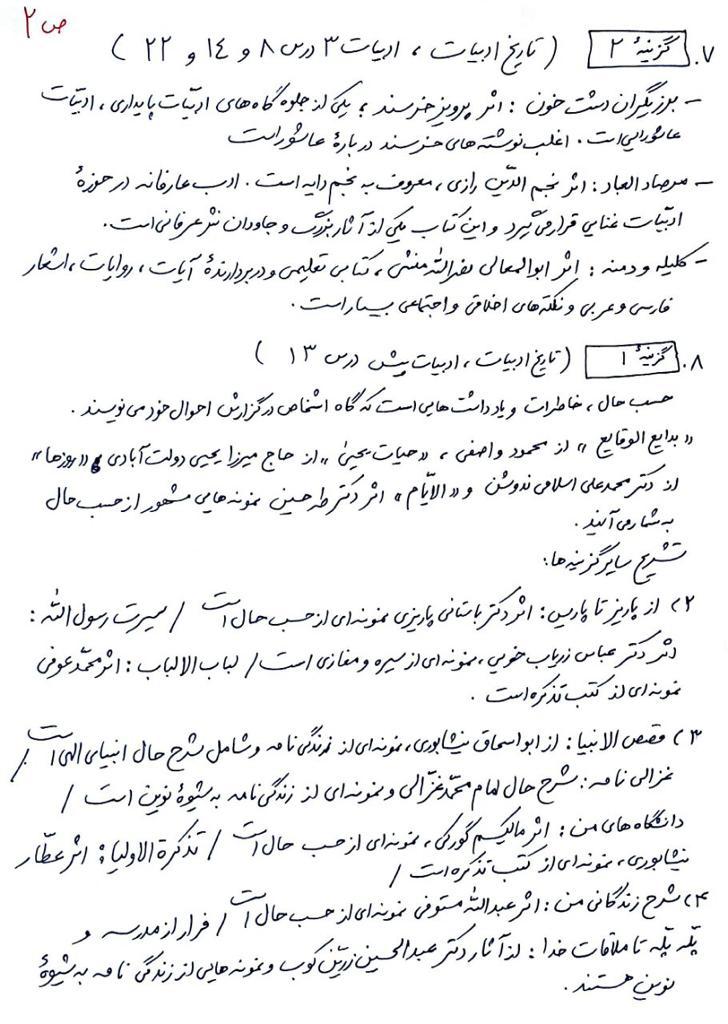 ص ۲
۷. گزینهٔ ۲ ( تاریخ ادبیات ، ادبیات ۳ درس ۸ و ۱۴ و ۲۲ )
- برزیگران دشت خون : اثر پرویز خرسند ؛ یکی از جلوه گاه های ادبیّات پایداری ، ادبیّات
عاشورایی است . اغلب نوشته های خرسند دربارهٔ عاشوراست
- مرصاد العباد : اثر نجم الدّین رازی ، معروف به نجم دایه است . ادب عارفانه در حوزهٔ
ادبیّات غنایی قرار می گیرد و این کتاب یکی از آثار بزرگ و جاودان نثر عرفانی است .
- کلیله و دمنه : اثر ابوالمعالی نصرالله منشی ، کتابی تعلیمی و دربردارندهٔ آیات ، روایات ، اشعار
فارسی و عربی و نکته های اخلاقی و اجتماعی بسیار است .
۸. گزینهٔ ۱ ( تاریخ ادبیات ، ادبیات پیش درس ۱۳ )
حسب حال ، خاطرات و یادداشت هایی است که گاه اشخاص در گزارش احوال خود می نویسند .
« بدایع الوقایع » از محمود واصفی ، « حیات یحییٰ » از حاج میرزا یحیی دولت آبادی ، « روزها »
از دکتر محمدعلی اسلامی ندوشن و « الایّام » اثر دکتر طه حسین نمونه هایی مشهور از حسب حال
به شمار می آیند .
تشریح سایر گزینه ها :
۲) از پاریز تا پاریس : اثر دکتر باستانی پاریزی نمونه ای از حسب حال است / سیرت رسول الله :
اثر دکتر عباس زریاب خویی ، نمونه ای از سیره و مغازی است / لباب الالباب : اثر محمّد عوفی
نمونه ای از کتب تذکره است .
۳) قصص الانبیا : از ابواسحاق نیشابوری ، نمونه ای از زندگی نامه و شامل شرح حال انبیای الهی است /
غزالی نامه : شرح حال امام محمّد غزّالی و نمونه ای از زندگی نامه به شیوهٔ نوین است /
دانشگاه های من : اثر ماکسیم گورکی ، نمونه ای از حسب حال است / تذکرة الاولیا : اثر عطّار
نیشابوری ، نمونه ای از کتب تذکره است /
۴) شرح زندگانی من : اثر عبدالله مستوفی نمونه ای از حسب حال است / فرار از مدرسه و
پلّه پلّه تا ملاقات خدا : از آثار دکتر عبدالحسین زرّین کوب و نمونه هایی از زندگی نامه به شیوهٔ
نوین هستند .